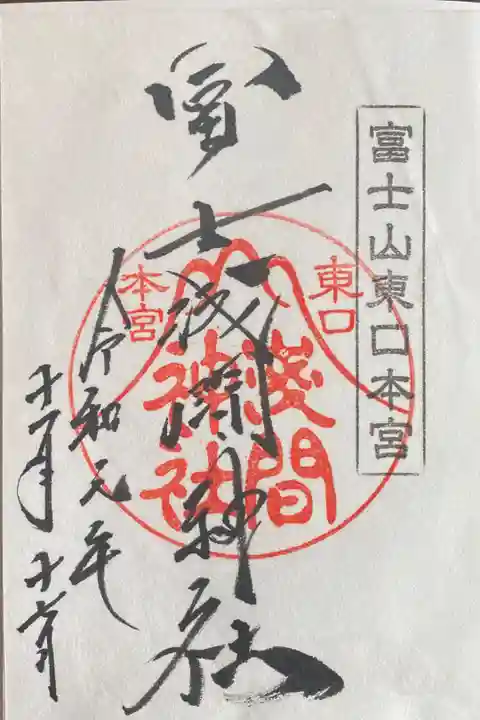 富士山東口本宮
冨士浅間神社
東口
本宮
淺間
神社
令和元年
十一月十六日